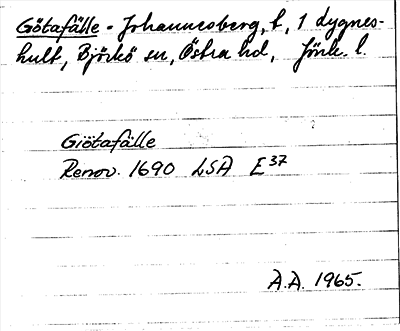 Götafälle - Johannesberg, t, 1 dygnes-
hult, Björkö sn, Östra hd, Jönk. l.
Giötafälle
Renov. 1690 LSA E³⁷
A.A. 1965.